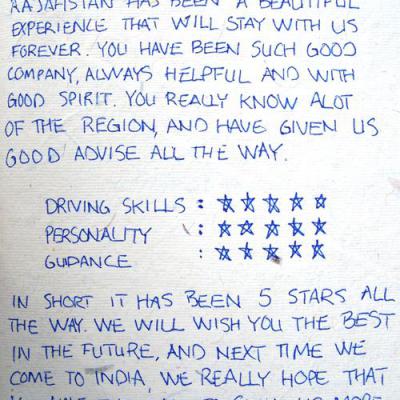 RAJAHSTAN HAS BEEN A BEAUTIFUL
EXPERIENCE THAT WILL STAY WITH US
FOREVER. YOU HAVE BEEN SUCH GOOD
COMPANY, ALWAYS HELPFUL AND WITH
GOOD SPIRIT. YOU REALLY KNOW ALOT
OF THE REGION, AND HAVE GIVEN US
GOOD ADVISE ALL THE WAY.
DRIVING SKILLS : ☆ ☆ ☆ ☆ ☆
PERSONALITY : ☆ ☆ ☆ ☆ ☆
GUIDANCE : ☆ ☆ ☆ ☆ ☆
IN SHORT IT HAS BEEN 5 STARS ALL
THE WAY. WE WILL WISH YOU THE BEST
IN THE FUTURE, AND NEXT TIME WE
COME TO INDIA, WE REALLY HOPE THAT